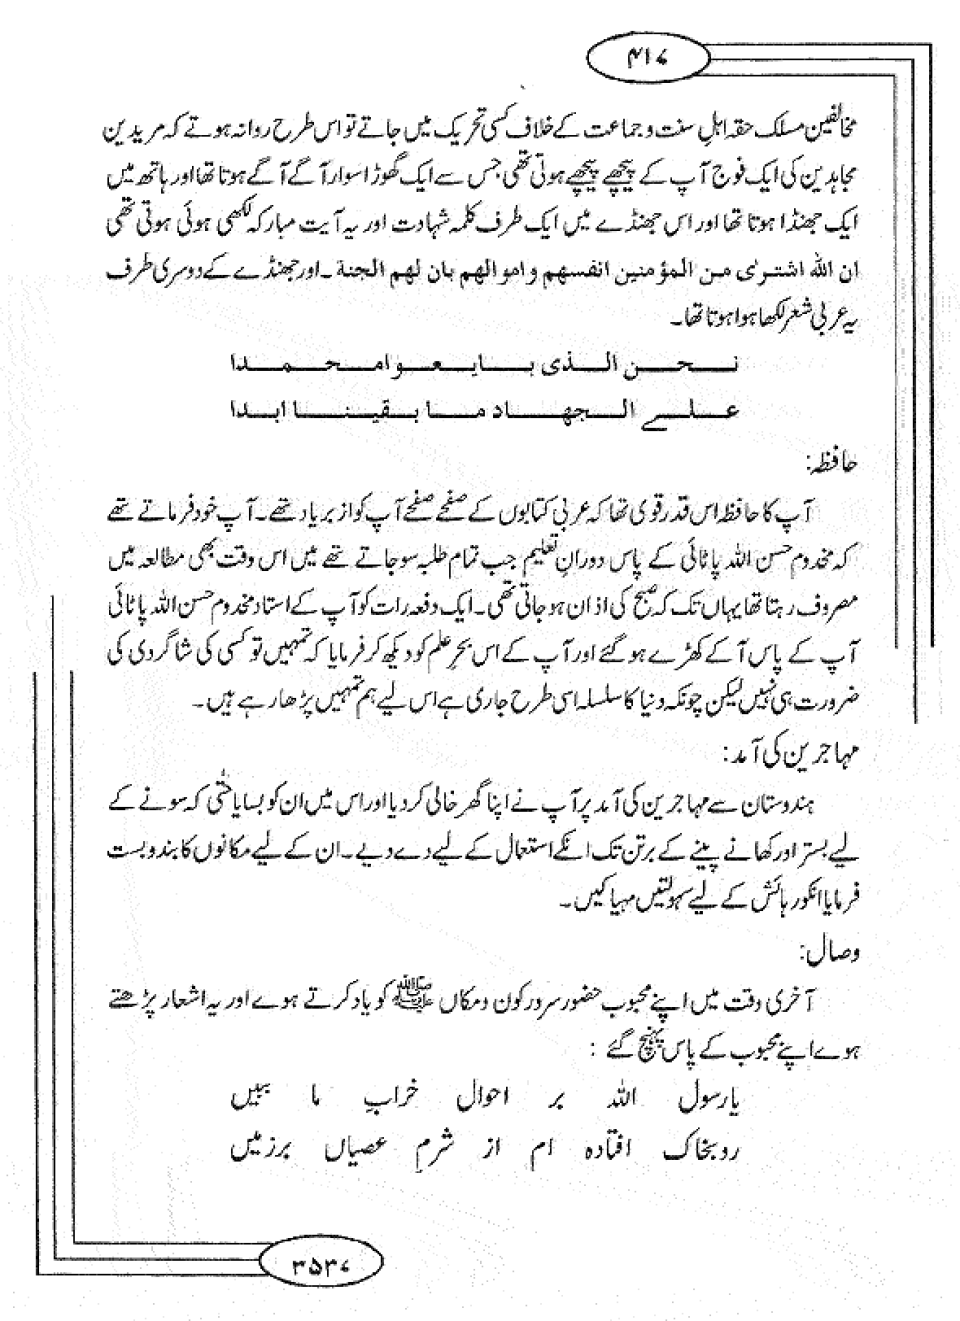 ۴۱۷
مخالفین مسلک حقہ اہلِ سنت و جماعت کے خلاف کسی تحریک میں جاتے تو اس طرح روانہ ہوتے کہ مریدین
مجاہدین کی ایک فوج آپ کے پیچھے پیچھے ہوتی تھی جس سے ایک گھوڑا سوار آگے آگے ہوتا تھا اور ہاتھ میں
ایک جھنڈا ہوتا تھا اور اس جھنڈے میں ایک طرف کلمہ شہادت اور یہ آیت مبارکہ لکھی ہوئی ہوتی تھی
ان اللہ اشتریٰ من المؤمنین انفسھم و اموالھم بان لھم الجنۃ ۔ اور جھنڈے کے دوسری طرف
یہ عربی شعر لکھا ہوا ہوتا تھا۔
نحن الذی بایعوا محمدا
علی الجھاد ما بقینا ابدا
حافظہ:
آپ کا حافظہ اس قدر قوی تھا کہ عربی کتابوں کے صفحے صفحے آپ کو از بر یاد تھے۔ آپ خود فرماتے تھے
کہ مخدوم حسن اللہ پاٹائی کے پاس دورانِ تعلیم جب تمام طلبہ سو جاتے تھے میں اس وقت بھی مطالعہ میں
مصروف رہتا تھا یہاں تک کہ صبح کی اذان ہو جاتی تھی۔ ایک دفعہ رات کو آپ کے استاد مخدوم حسن اللہ پاٹائی
آپ کے پاس آ کے کھڑے ہو گئے اور آپ کے اس بحرِ علم کو دیکھ کر فرمایا کہ تمہیں تو کسی کی شاگردی کی
ضرورت ہی نہیں لیکن چونکہ دنیا کا سلسلہ اسی طرح جاری ہے اس لیے ہم تمہیں پڑھا رہے ہیں۔
مہاجرین کی آمد:
ہندوستان سے مہاجرین کی آمد پر آپ نے اپنا گھر خالی کر دیا اور اس میں ان کو بسایا حتّٰی کہ سونے کے
لیے بستر اور کھانے پینے کے برتن تک انکے استعمال کے لیے دے دیے۔ ان کے لیے مکانوں کا بندوبست
فرمایا انکو رہائش کے لیے سہولتیں مہیا کیں۔
وصال:
آخری وقت میں اپنے محبوب حضور سرور کون و مکاں ﷺ کو یاد کرتے ہوے اور یہ اشعار پڑھتے
ہوے اپنے محبوب کے پاس پہنچ گئے :
یارسول اللہ بر احوال خراب ما ببیں
رو بخاک افتادہ ام از شرمِ عصیاں بر زمیں
۳۵۳۷